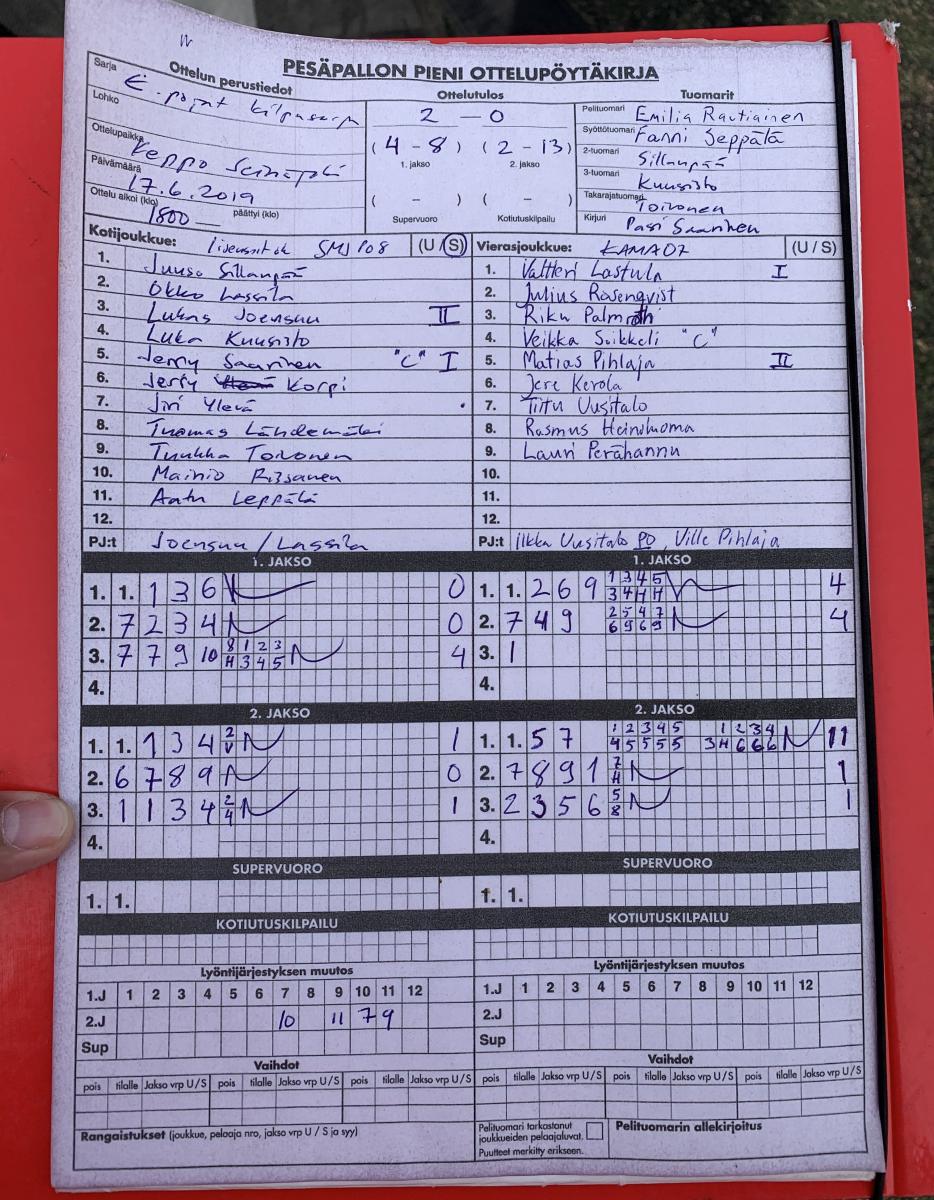 PESÄPALLON PIENI OTTELUPÖYTÄKIRJA
Ottelun perustiedot
Sarja E-pojat kilpasarja
Lohko
Ottelupaikka Keppo Seinäjoki
Päivämäärä 17.6.2019
Ottelu alkoi (klo) 1800 päättyi (klo)
Ottelutulos
2 - 0
(4 - 8) (2 - 13)
1. jakso 2. jakso
( - ) ( - )
Supervuoro Kotiutuskilpailu
Tuomarit
Pelituomari Emilia Rautiainen
Syöttötuomari Fanni Seppälä
2-tuomari Sillanpää
3-tuomari Kuusisto
Takarajatuomari Toivonen
Kirjuri Pasi Saarinen
Kotijoukkue: SMJ P08 (U / S)
1. Juuso Sillanpää
2. Okko Lassila
3. Lukas Joensuu II
4. Luka Kuusisto
5. Jerry Saarinen "C" I
6. Jerry Korpi
7. Jiri Ylevä
8. Tuomas Lähdemäki
9. Tuukka Toivonen
10. Mainio Riisanen
11. Aatu Leppälä
12.
PJ:t Joensuu / Lassila
Vierasjoukkue: KAMA07 (U / S)
1. Valtteri Lastula I
2. Julius Rosenqvist
3. Riku Palmroth
4. Veikka Soikkeli "C"
5. Matias Pihlaja II
6. Jere Kerola
7. Tiitu Uusitalo
8. Rasmus Heinoluoma
9. Lauri Perähannu
10.
11.
12.
PJ:t Ilkka Uusitalo PO, Ville Pihlaja
1. JAKSO
1. 1. 1 3 6 0
2. 7 2 3 4 0
3. 7 7 9 10 8 1 2 3 4
H 3 4 5
4.
1. JAKSO
1. 1. 2 6 9 1 3 4 5 4
3 4 H H
2. 7 4 9 2 5 4 7 4
6 9 6 9
3. 1
4.
2. JAKSO
1. 1. 1 3 4 2 1
V
2. 6 7 8 9 0
3. 1 1 3 4 2 1
4
4.
2. JAKSO
1. 1. 5 7 1 2 3 4 5 1 2 3 4 11
4 5 5 5 5 3 H 6 6 6
2. 7 8 9 1 7 1
H
3. 2 3 5 6 5 1
8
4.
SUPERVUORO
1. 1.
SUPERVUORO
1. 1.
KOTIUTUSKILPAILU
KOTIUTUSKILPAILU
Lyöntijärjestyksen muutos
1.J 1 2 3 4 5 6 7 8 9 10 11 12
2.J 10 11 7 9
Sup
Lyöntijärjestyksen muutos
1.J 1 2 3 4 5 6 7 8 9 10 11 12
2.J
Sup
Vaihdot
pois tilalle Jakso vrp U / S pois tilalle Jakso vrp U / S pois tilalle Jakso vrp U / S
Vaihdot
pois tilalle Jakso vrp U / S pois tilalle Jakso vrp U / S pois tilalle Jakso vrp U / S
Rangaistukset (joukkue, pelaaja nro, jakso vrp U / S ja syy)
Pelituomari tarkastanut
joukkueiden pelaajaluvat.
Puutteet merkitty erikseen.
Pelituomarin allekirjoitus